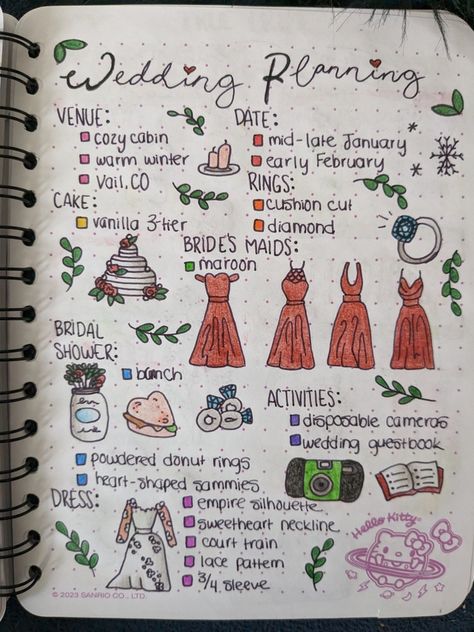 Wedding Planning
VENUE:
cozy cabin
warm winter
Vail, CO
DATE:
mid-late January
early February
RINGS:
cushion cut
diamond
CAKE:
vanilla 3-tier
BRIDE'S MAIDS:
maroon
BRIDAL
SHOWER:
brunch
powdered donut rings
heart-shaped sammies
ACTIVITIES:
disposable cameras
wedding guestbook
DRESS:
empire silhouette
sweetheart neckline
court train
lace pattern
3/4 sleeve
Hello Kitty®
© 2023 SANRIO CO., LTD.